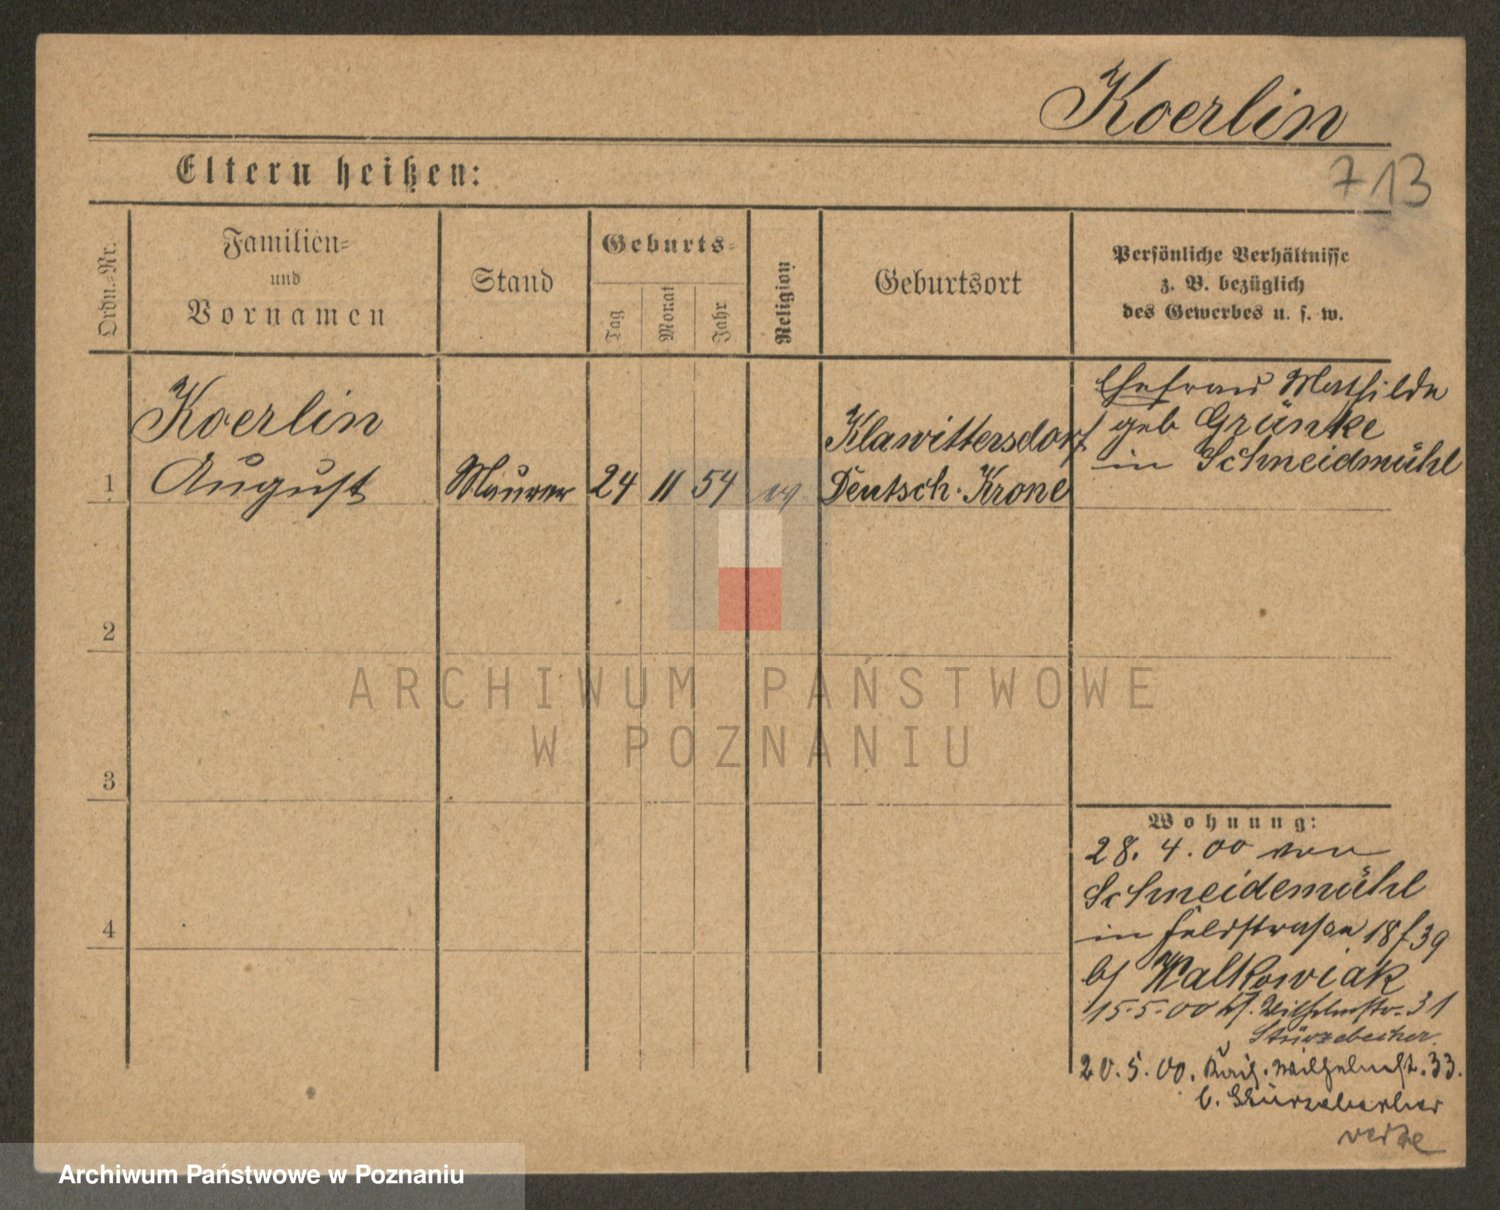 Koerlin
713
Eltern heißen:
Ordn.-Nr.
Familien-
und
Vornamen
Stand
Geburts-
Tag
Monat
Jahr
Religion
Geburtsort
Persönliche Verhältnisse
z. B. bezüglich
des Gewerbes u. s. w.
1
Koerlin
August
Maurer
24
11
54
ev
Klawittersdorf
Deutsch-Krone
Ehefrau Mathilde
geb Grünke
in Schneidmühl
2
3
4
Wohnung:
28. 4. 00 von
Schneidemühl
in Feldstraße 18 f 39
b/ Walkowiak
15.5.00 Wilhelmstr. 31
Stürzebecher
20.5.00. Kais. Wilhelmst. 33.
b. Stürzebecher
ARCHIWUM PAŃSTWOWE
W POZNANIU
Archiwum Państwowe w Poznaniu